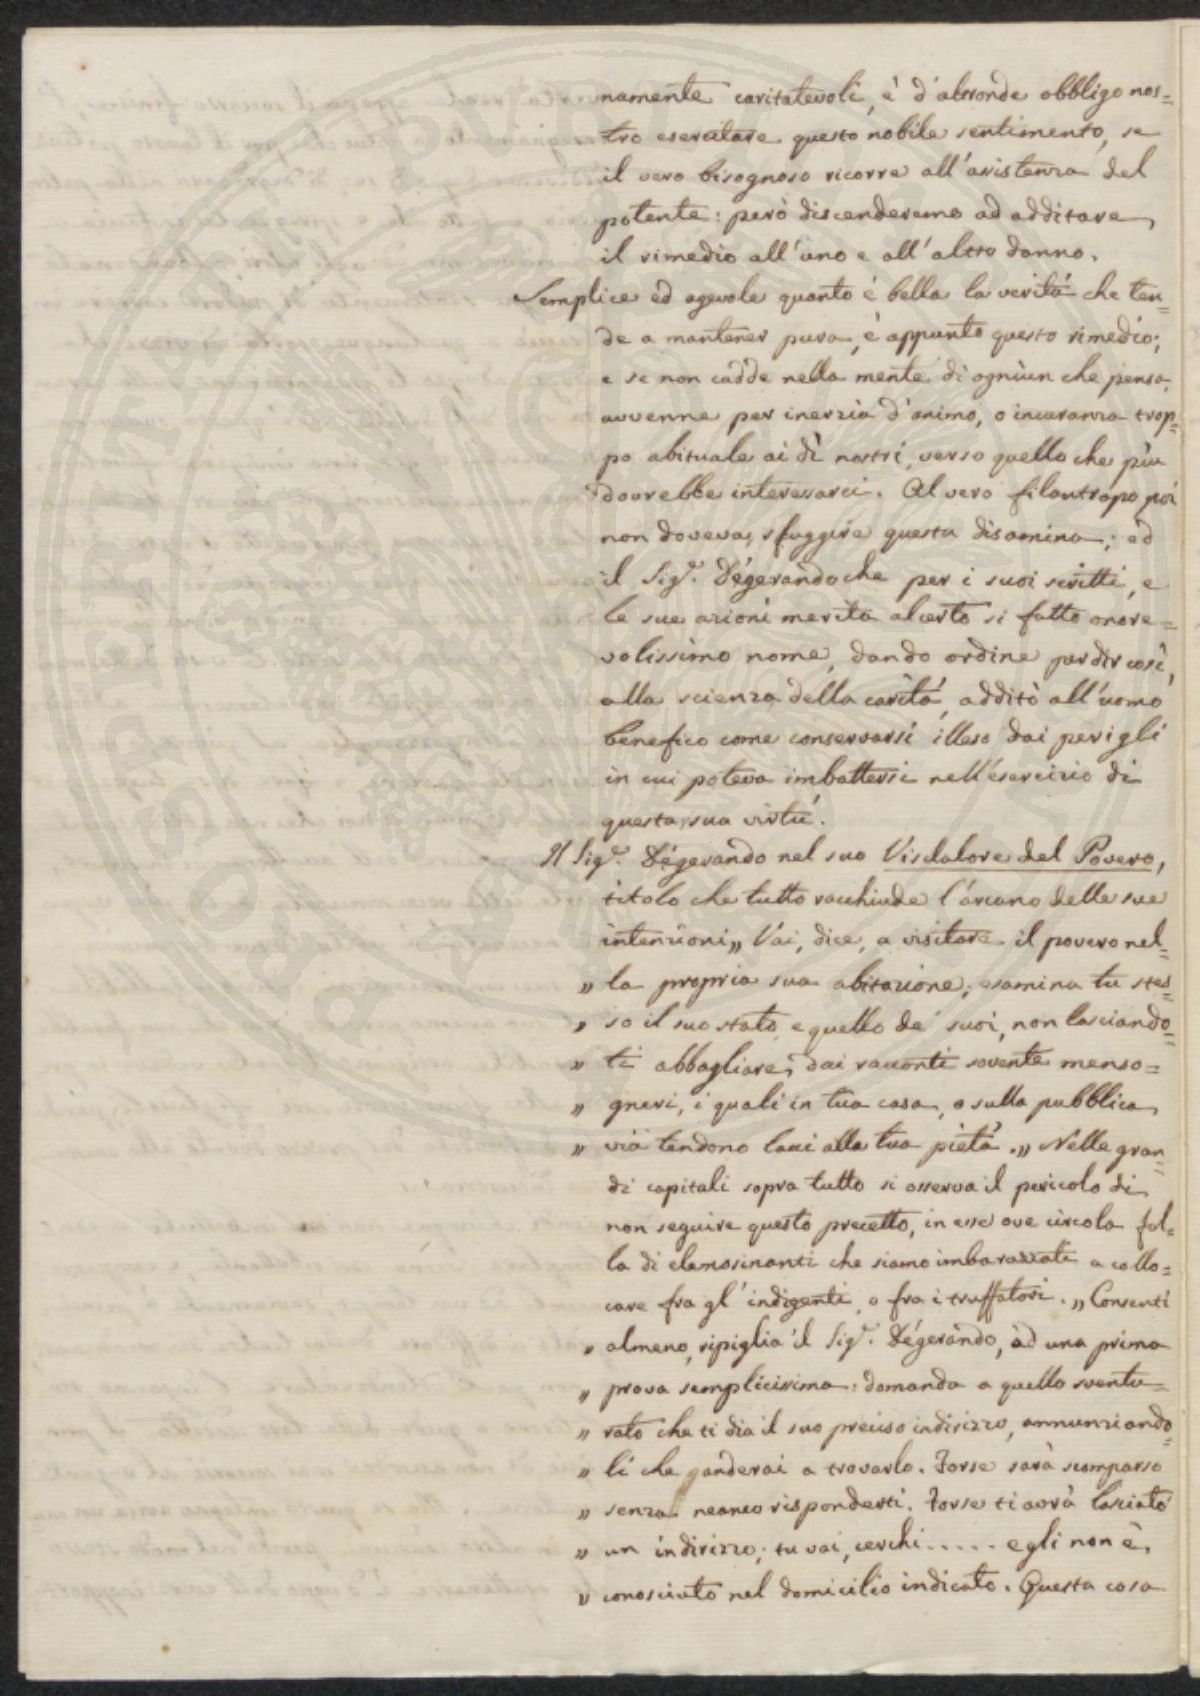 namente caritatevoli, è d'altronde obbligo nos=
tro esercitare questo nobile sentimento, se
il vero bisognoso ricorre all'assistenza del
potente: però discenderemo ad additare
il rimedio all'uno e all'altro danno.
Semplice ed agevole quanto è bella la verità che ten=
de a mantener pura, è appunto questo rimedio;
e se non cadde nella mente di ogniun che pensa,
avvenne per inerzia d'animo, o incuranza trop=
po abituale ai dì nostri, verso quello che più
dovrebbe interessarci. Al vero filantropo poi
non doveva sfuggire questa disamina; ed
il Sigr. Dégerando che per i suoi scritti, e
le sue azioni merita al certo si fatto onore=
volissimo nome, dando ordine per dir così,
alla scienza della carità, additò all'uomo
benefico come conservarsi illeso dai perigli
in cui poteva imbattersi nell'esercizio di
questa sua virtù.
Il Sigr. Dégerando nel suo Visitatore del Povero,
titolo che tutto racchiude l'arcano delle sue
intenzioni „ Vai, dice, a visitare il povero nel=
„ la propria sua abitazione; esamina tu stes=
„ so il suo stato, e quello de' suoi, non lasciando=
„ ti abbagliare, dai racconti sovente menso=
„ gneri, i quali in tua casa, o sulla pubblica
„ via tendono lacci alla tua pietà. „ Nelle gran=
di capitali sopra tutto si osserva il pericolo di
non seguire questo precetto, in esse ove circola fol=
la di elemosinanti che siamo imbarazzati a collo=
care fra gl'indigenti, o fra i truffatori. „ Consenti
„ almeno, ripiglia il Sigr. Dégerando, ad una prima
„ prova semplicissima: domanda a quello sventu=
„ rato che ti dia il suo preciso indirizzo, annunziando=
„ li che anderai a trovarlo. Forse sarà scomparso
„ senza neanco risponderti. Forse ti avrà lasciato
„ un indirizzo; tu vai, cerchi..... egli non è
„ conosciuto nel domicilio indicato. Questa cosa